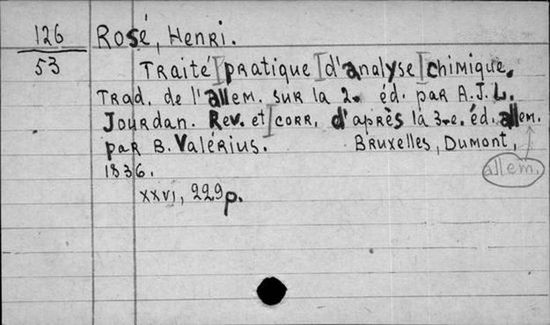 126
53
Rosé, Henri.
Traité pratique d'analyse chimique.
Trad. de l'allem. sur la 2e éd. par A.J.L.
Jourdan. Rev. et corr. d'après la 3e. éd. allem.
par B. Valérius. Bruxelles, Dumont,
1836.
allem.
xxvi, 229p.